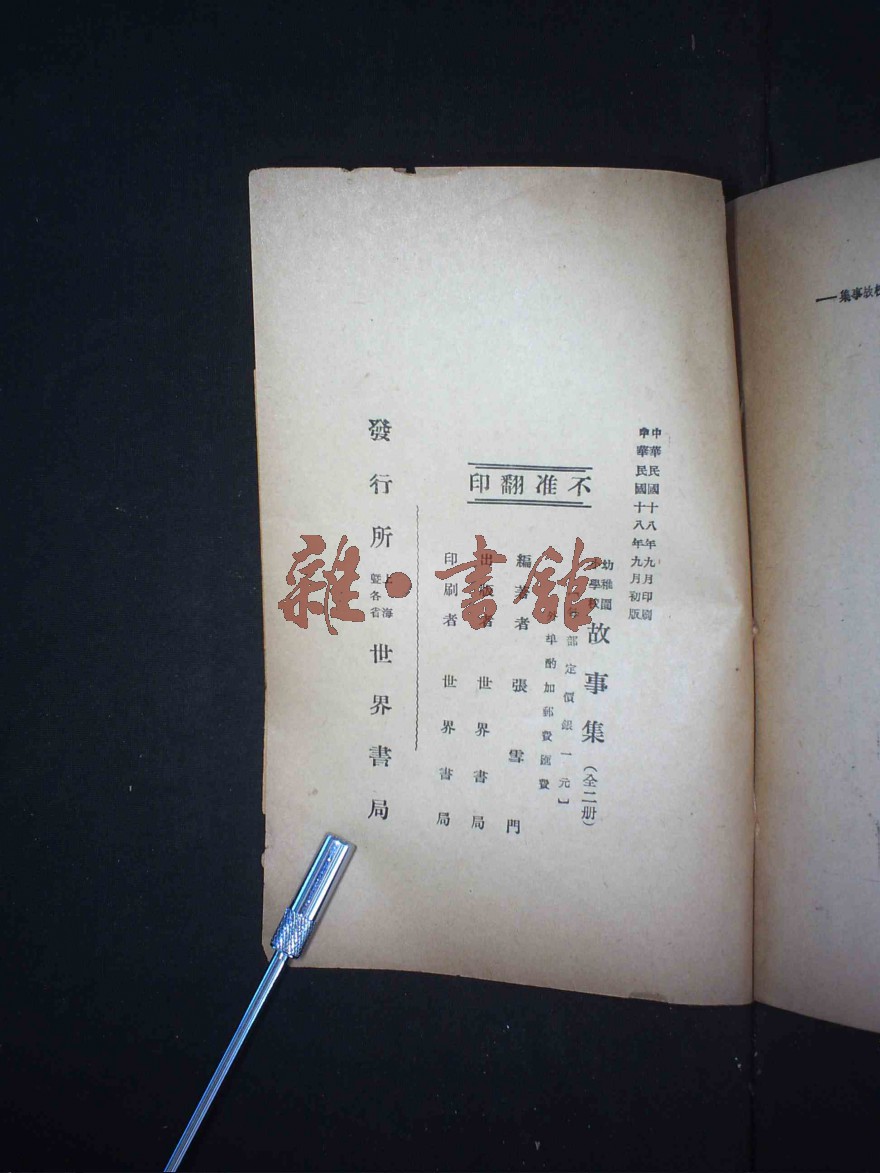 中華民國十八年九月印刷
中華民國十八年九月初版
幼稚園
小學校
故事集（全二册）
部定價銀一元】
埠酌加郵費匯費
不准翻印
編著者 張雪門
出版者 世界書局
印刷者 世界書局
發行所 上海 暨各省 世界書局
雜·書館
故事集